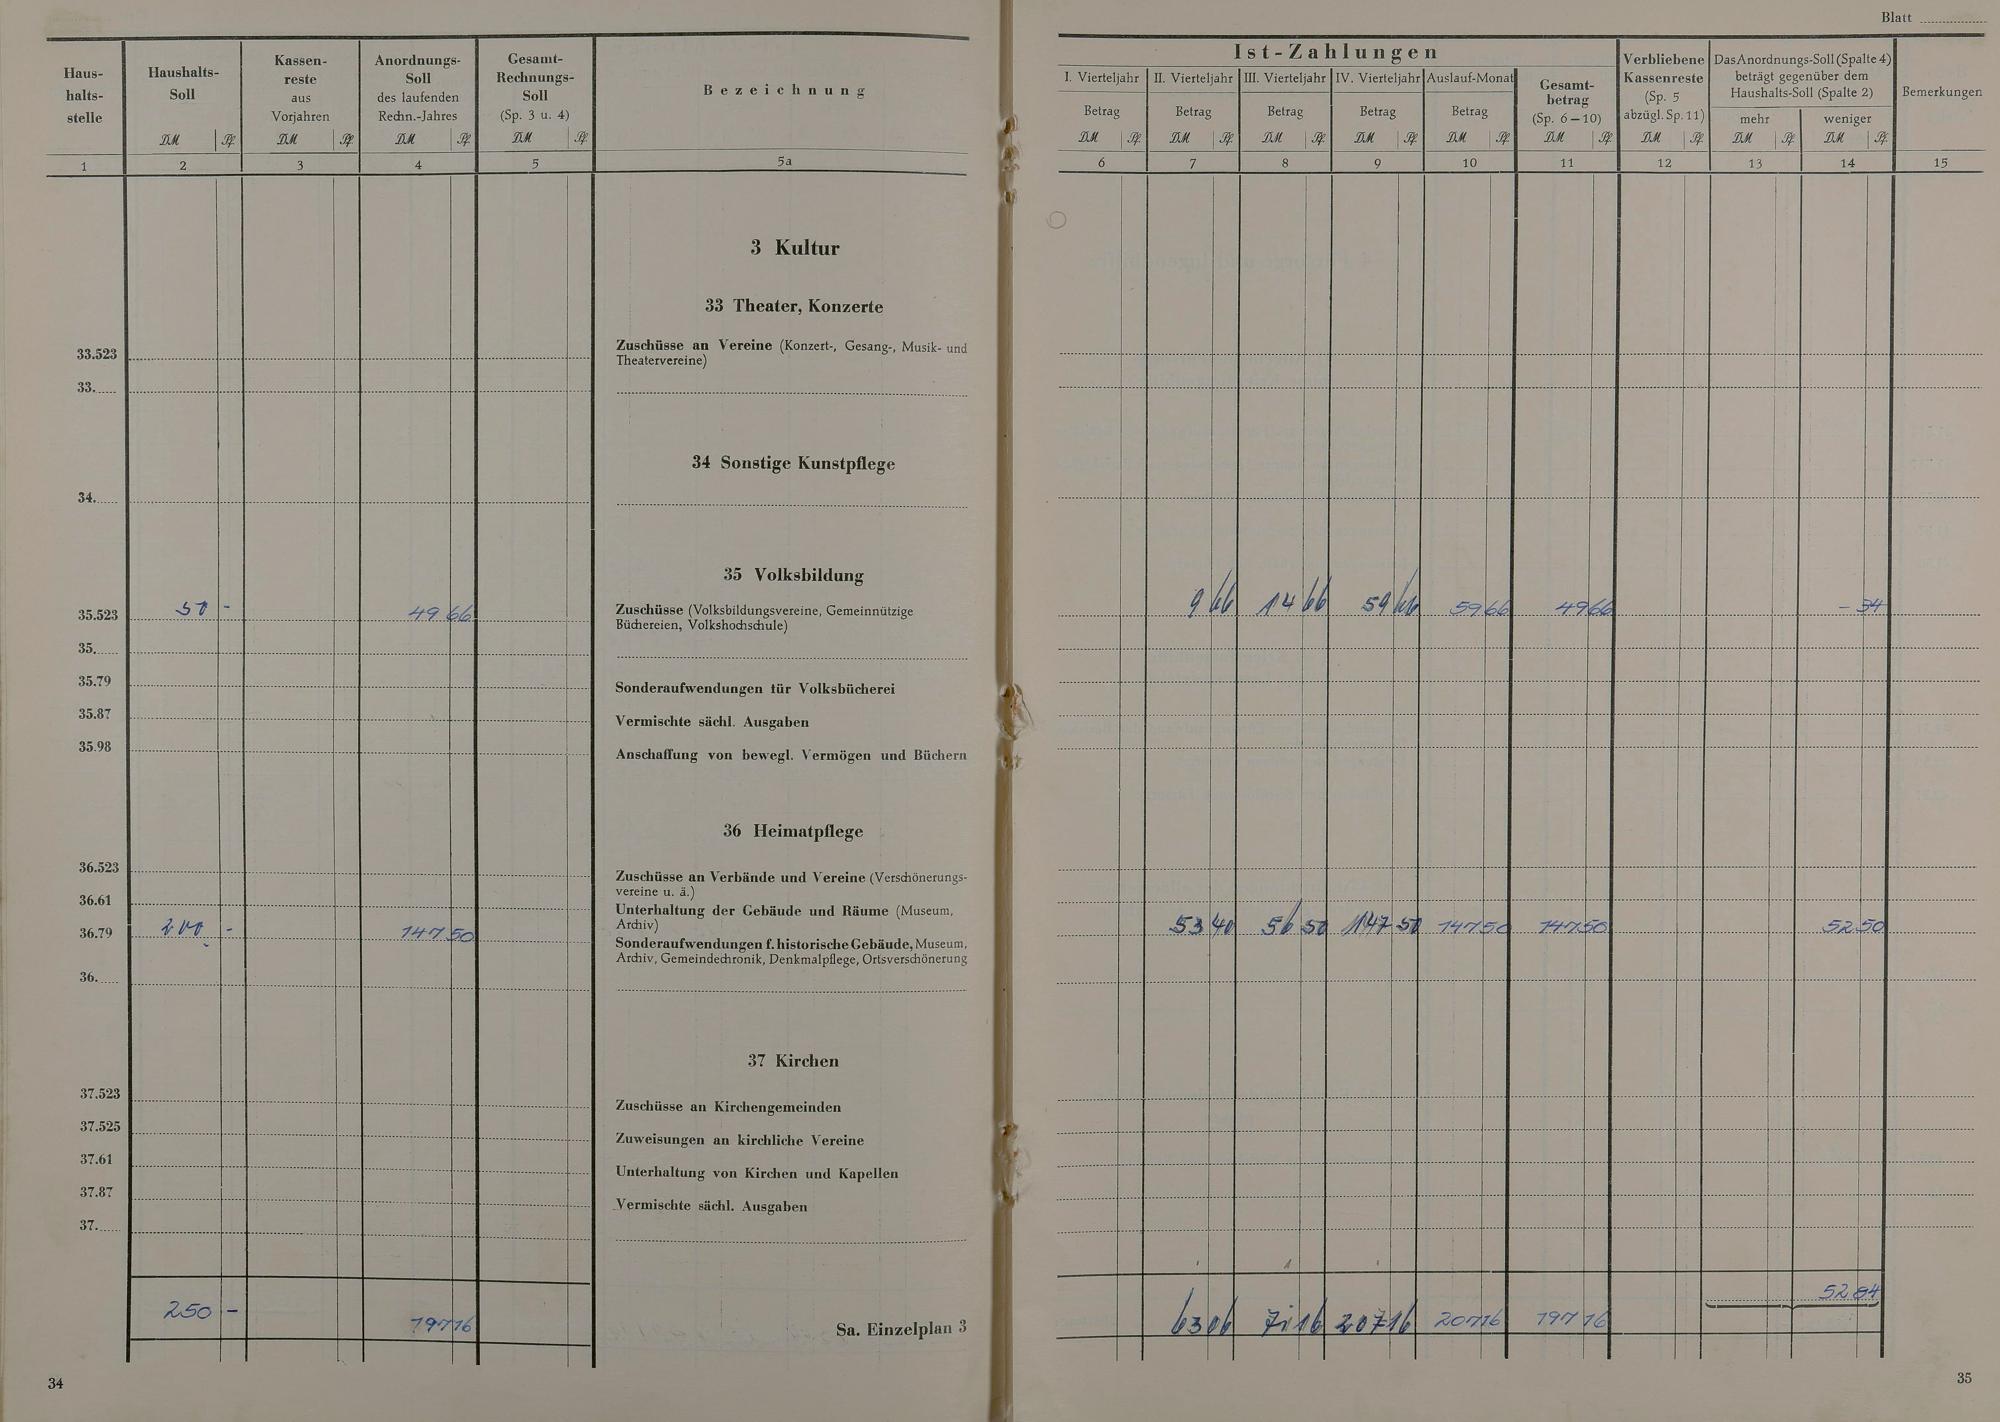 Blatt
Haus-
halts-
stelle
Haushalts-
Soll
DM Pf.
Kassen-
reste
aus
Vorjahren
DM Pf.
Anordnungs-
Soll
des laufenden
Rechn.-Jahres
DM Pf.
Gesamt-
Rechnungs-
Soll
(Sp. 3 u. 4)
DM Pf.
Bezeichnung
Ist-Zahlungen
I. Vierteljahr II. Vierteljahr III. Vierteljahr IV. Vierteljahr Auslauf-Monat
Betrag Betrag Betrag Betrag Betrag
DM Pf. DM Pf. DM Pf. DM Pf. DM Pf.
Gesamt-
betrag
(Sp. 6–10)
DM Pf.
Verbliebene
Kassenreste
(Sp. 5
abzügl. Sp. 11)
DM Pf.
Das Anordnungs-Soll (Spalte 4)
beträgt gegenüber dem
Haushalts-Soll (Spalte 2)
mehr weniger
DM Pf. DM Pf.
Bemerkungen
1 2 3 4 5 5a 6 7 8 9 10 11 12 13 14 15
3 Kultur
33 Theater, Konzerte
33.523 Zuschüsse an Vereine (Konzert-, Gesang-, Musik- und
Theatervereine)
33.
34 Sonstige Kunstpflege
34.
35 Volksbildung
35.523 50 - 49 66 Zuschüsse (Volksbildungsvereine, Gemeinnützige 9 66 14 66 59 66 59 66 49 66 - 34
Büchereien, Volkshochschule)
35.
35.79 Sonderaufwendungen für Volksbücherei
35.87 Vermischte sächl. Ausgaben
35.98 Anschaffung von bewegl. Vermögen und Büchern
36 Heimatpflege
36.523 Zuschüsse an Verbände und Vereine (Verschönerungs-
vereine u. ä.)
36.61 Unterhaltung der Gebäude und Räume (Museum,
Archiv)
36.79 200 - 147 50 Sonderaufwendungen f. historische Gebäude, Museum, 53 40 56 50 147 50 147 50 147 50 52 50
Archiv, Gemeindechronik, Denkmalpflege, Ortsverschönerung
36.
37 Kirchen
37.523 Zuschüsse an Kirchengemeinden
37.525 Zuweisungen an kirchliche Vereine
37.61 Unterhaltung von Kirchen und Kapellen
37.87 Vermischte sächl. Ausgaben
37.
52 84
250 - 197 16 Sa. Einzelplan 3 63 06 71 16 207 16 207 16 197 16
34
35